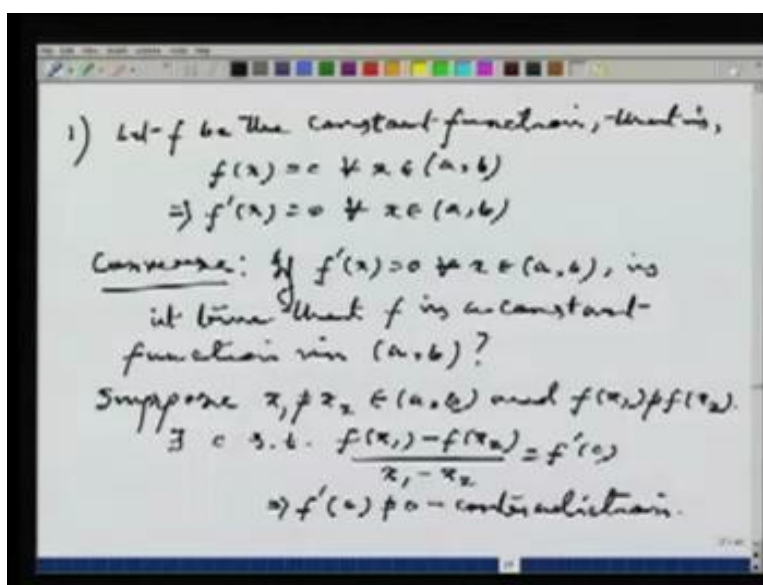 1) Let f be the constant function, that is,
f(x) = c ∀ x ∈ (a, b)
⇒ f'(x) = 0 ∀ x ∈ (a, b)
Converse: If f'(x) = 0 ∀ x ∈ (a, b), is
it true that f is a constant
function in (a, b)?
Suppose x₁ ≠ x₂ ∈ (a, b) and f(x₁) ≠ f(x₂).
∃ c s.t. (f(x₁) - f(x₂)) / (x₁ - x₂) = f'(c)
⇒ f'(c) ≠ 0 - contradiction.